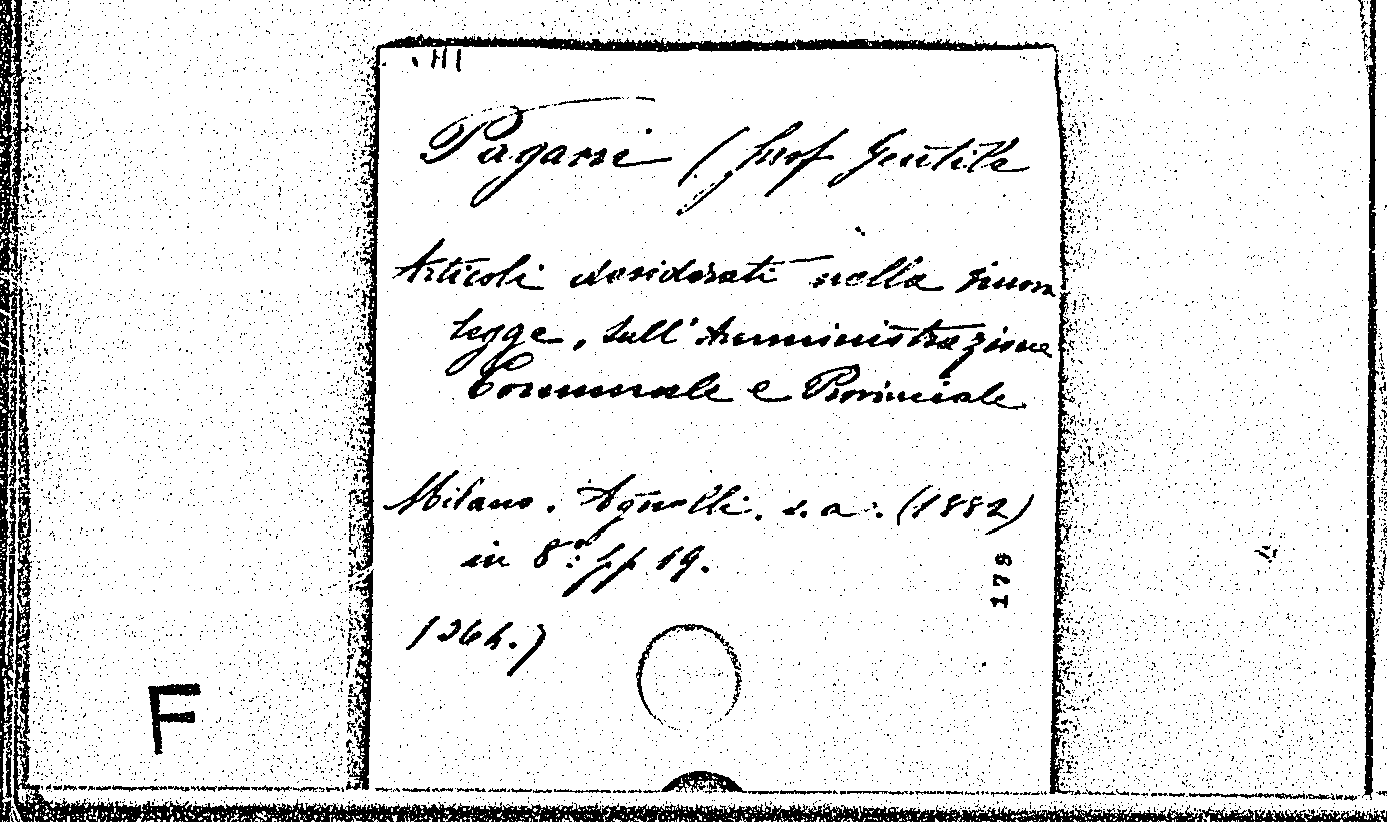 Pagani (prof Gentile
Articoli desiderati nella nuova
legge, sull' Amministrazione
Comunale e Provinciale
Milano. Agnelli. s. a. (1882)
in 8.° pp 19.
179
F